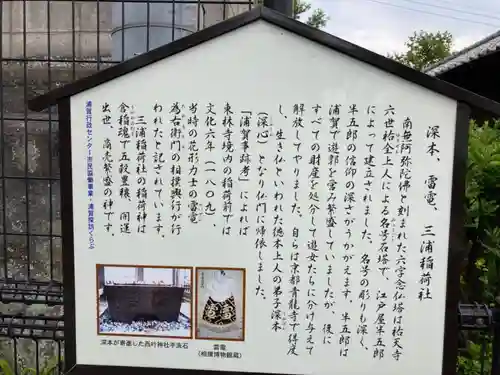 深本、雷電、三浦稲荷社
南無阿弥陀佛と刻まれた六字念仏塔は祐天寺
六世祐全上人による名号石塔で、江戸屋半五郎
によって建立されました。名号の彫りも深く、
半五郎の信仰の深さがうかがえます。半五郎は
浦賀で遊郭を営み繁盛していましたが、後に
すべての財産を処分して遊女たちに分け与えて
解放してやりました。自らは京都青龍寺で得度
し、生き仏といわれた徳本上人の弟子深本
(深心)となり仏門に帰依しました。
「浦賀事跡考」によれば
東林寺境内の稲荷前では
文化六年(一八〇九)、
当時の花形力士の雷電
為右衛門の相撲興行が行
われたと記されています。
三浦稲荷社の稲荷神は
倉稲魂で五穀豊穣、開運
出世、商売繁盛の神です。
浦賀行政センター市民協働事業・浦賀探訪くらぶ
深本が寄進した西叶神社手洗石
雷電
(相撲博物館蔵)